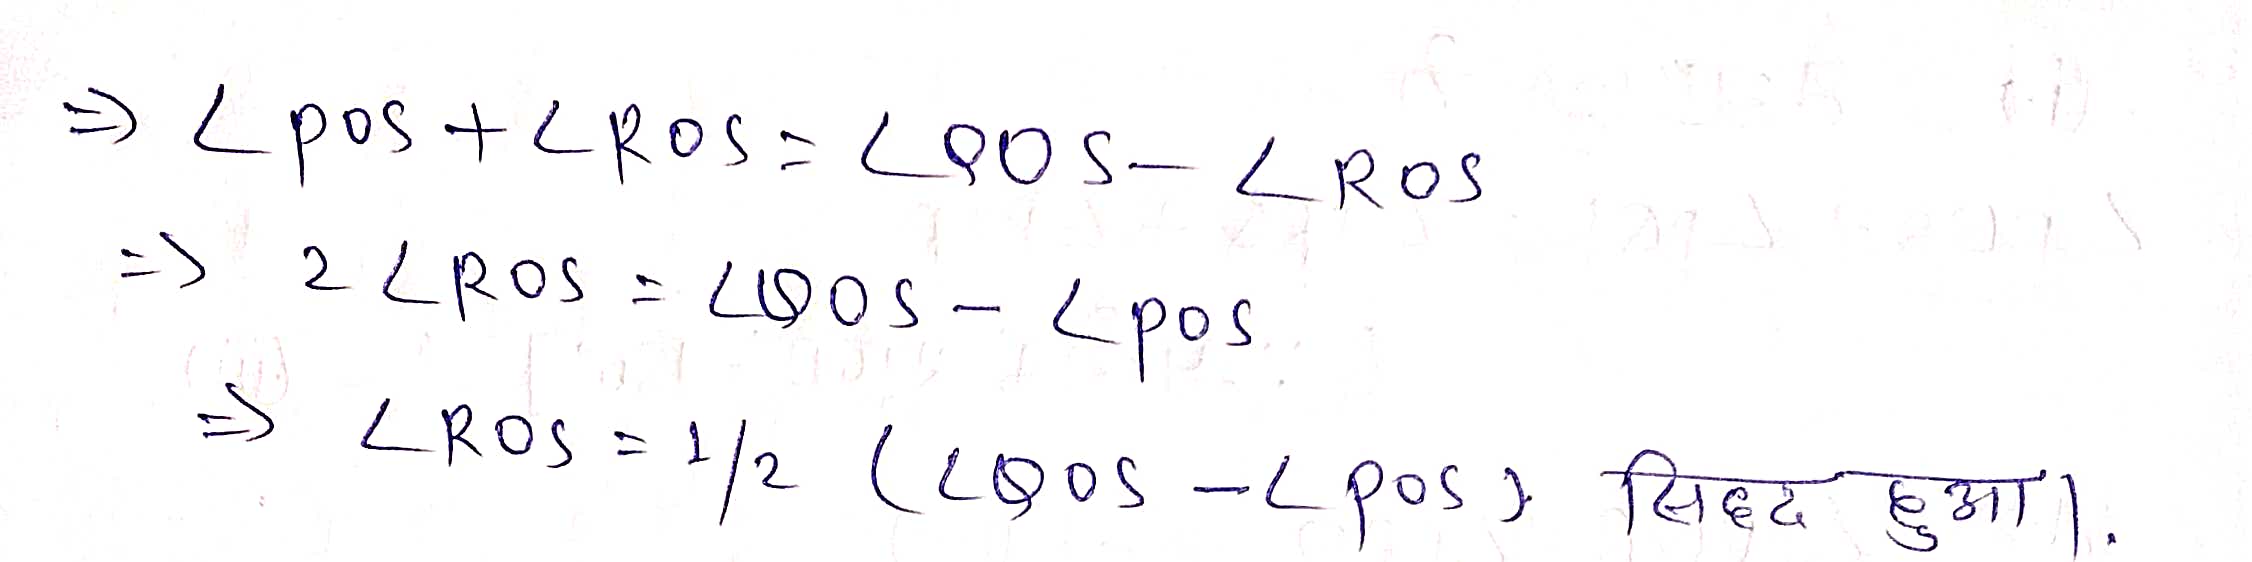 ⇒ ∠POS + ∠ROS = ∠QOS − ∠ROS
⇒ 2∠ROS = ∠QOS − ∠POS
⇒ ∠ROS = 1/2 (∠QOS − ∠POS) सिध्द हुआ।.